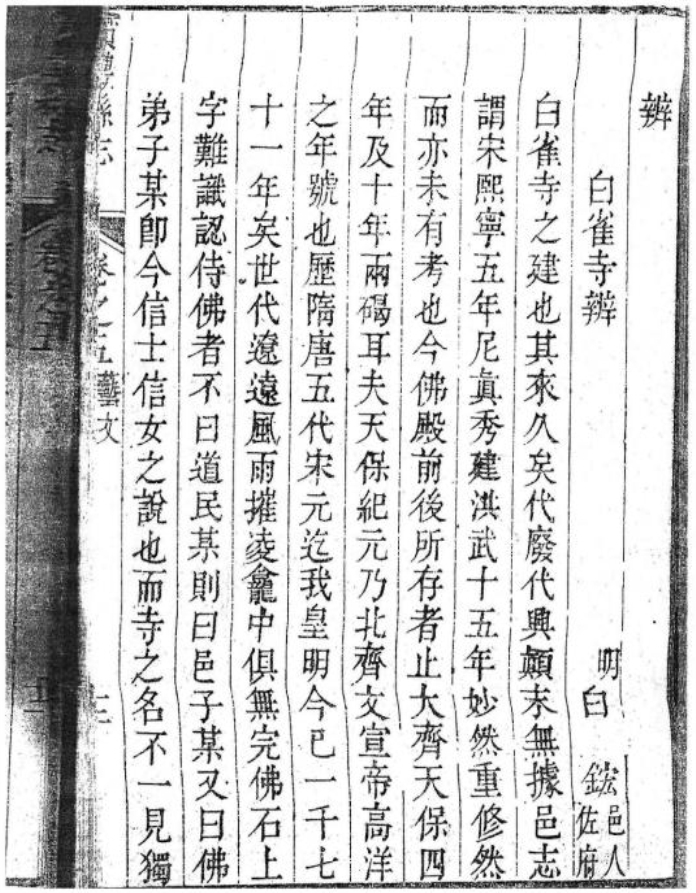 辨
白雀寺辨 明 白 鋐 邑人佐府
白雀寺之建也其來久矣代廢代興顛末無據邑志
謂宋熙寧五年尼眞秀建洪武十五年妙然重修然
而亦未有考也今佛殿前後所存者止大齊天保四
年及十年兩碣耳夫天保紀元乃北齊文宣帝高洋
之年號也歷隋唐五代宋元迄我皇明今已一千七
十一年矣世代遼遠風雨摧凌龕中俱無完佛石上
字難識認侍佛者不曰道民某則曰邑子某又曰佛
弟子某卽今信士信女之說也而寺之名不一見獨
縣志 卷之五 藝文